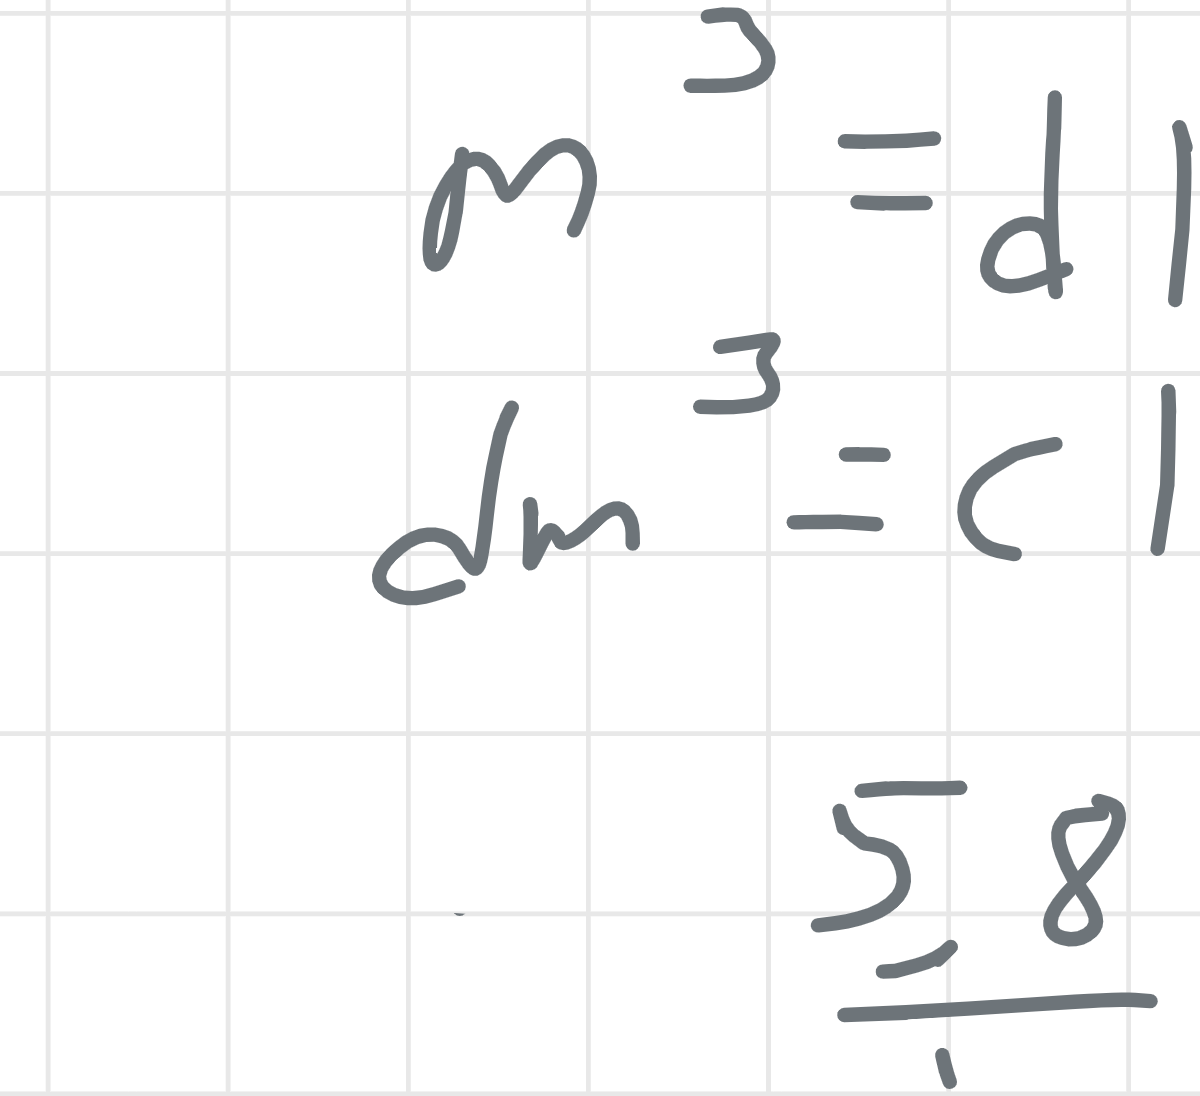 m³ = dl
dm³ = cl
58